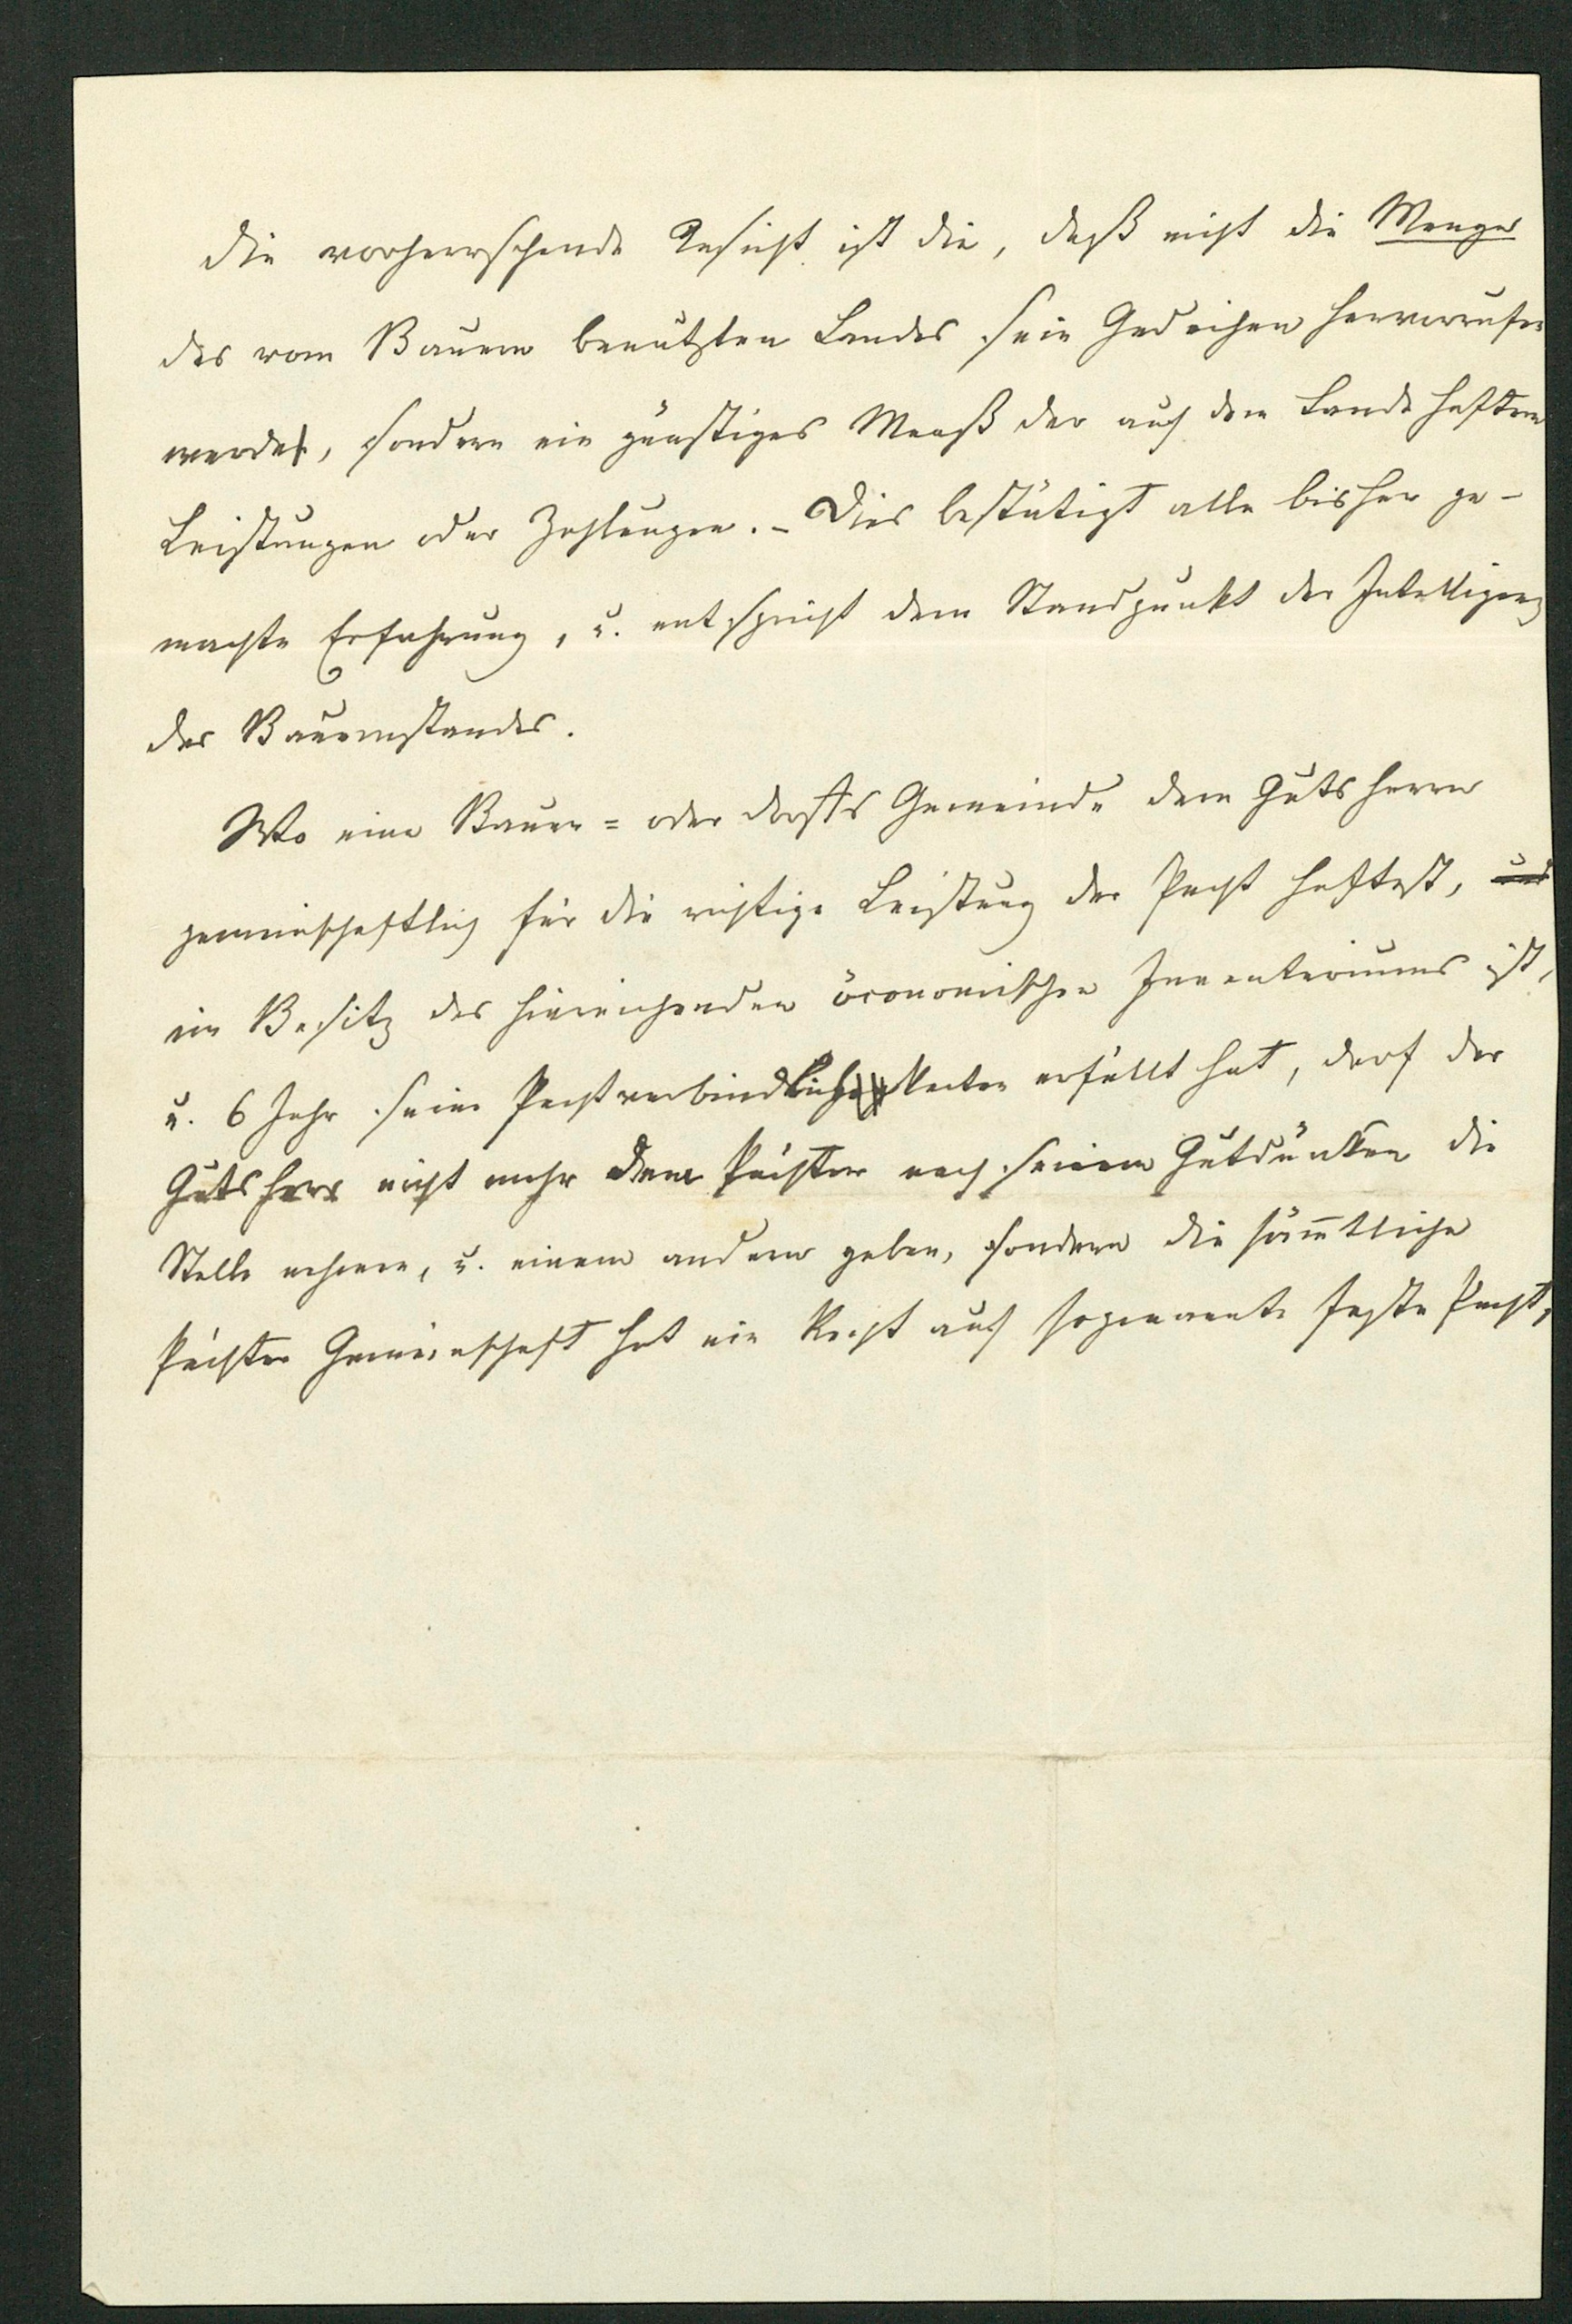 Die vorherrschende Ansicht ist die, daß nicht die Menge
des vom Bauern benutzten Landes sein Gedeihen hervorrufen
werde, sondern ein günstiges Maaß der auf dem Lande haftenden
Leistungen oder Zahlungen. – Dies bestätigt alle bisher ge-
machte Erfahrung, u. entspricht dem Standpunkt der Intelligenz
des Bauernstandes.
Wo eine Bauer = oder Dorfs Gemeinde dem Gutsherrn
gemeinschaftlich für die richtige Leistung der Pacht haftet, und
im Besitz des hinreichenden öconomischen Inventariums ist,
u. 6 Jahr seine Pachtverbindlichkeiten erfüllt hat, darf der
Gutsherr nicht mehr dem Pächter nach seinem Gutdünken die
Stelle nehmen, u. einem andern geben, sondern die sämtliche
Pächter Gemeinschaft hat ein Recht auf sogenannte feste Pacht,